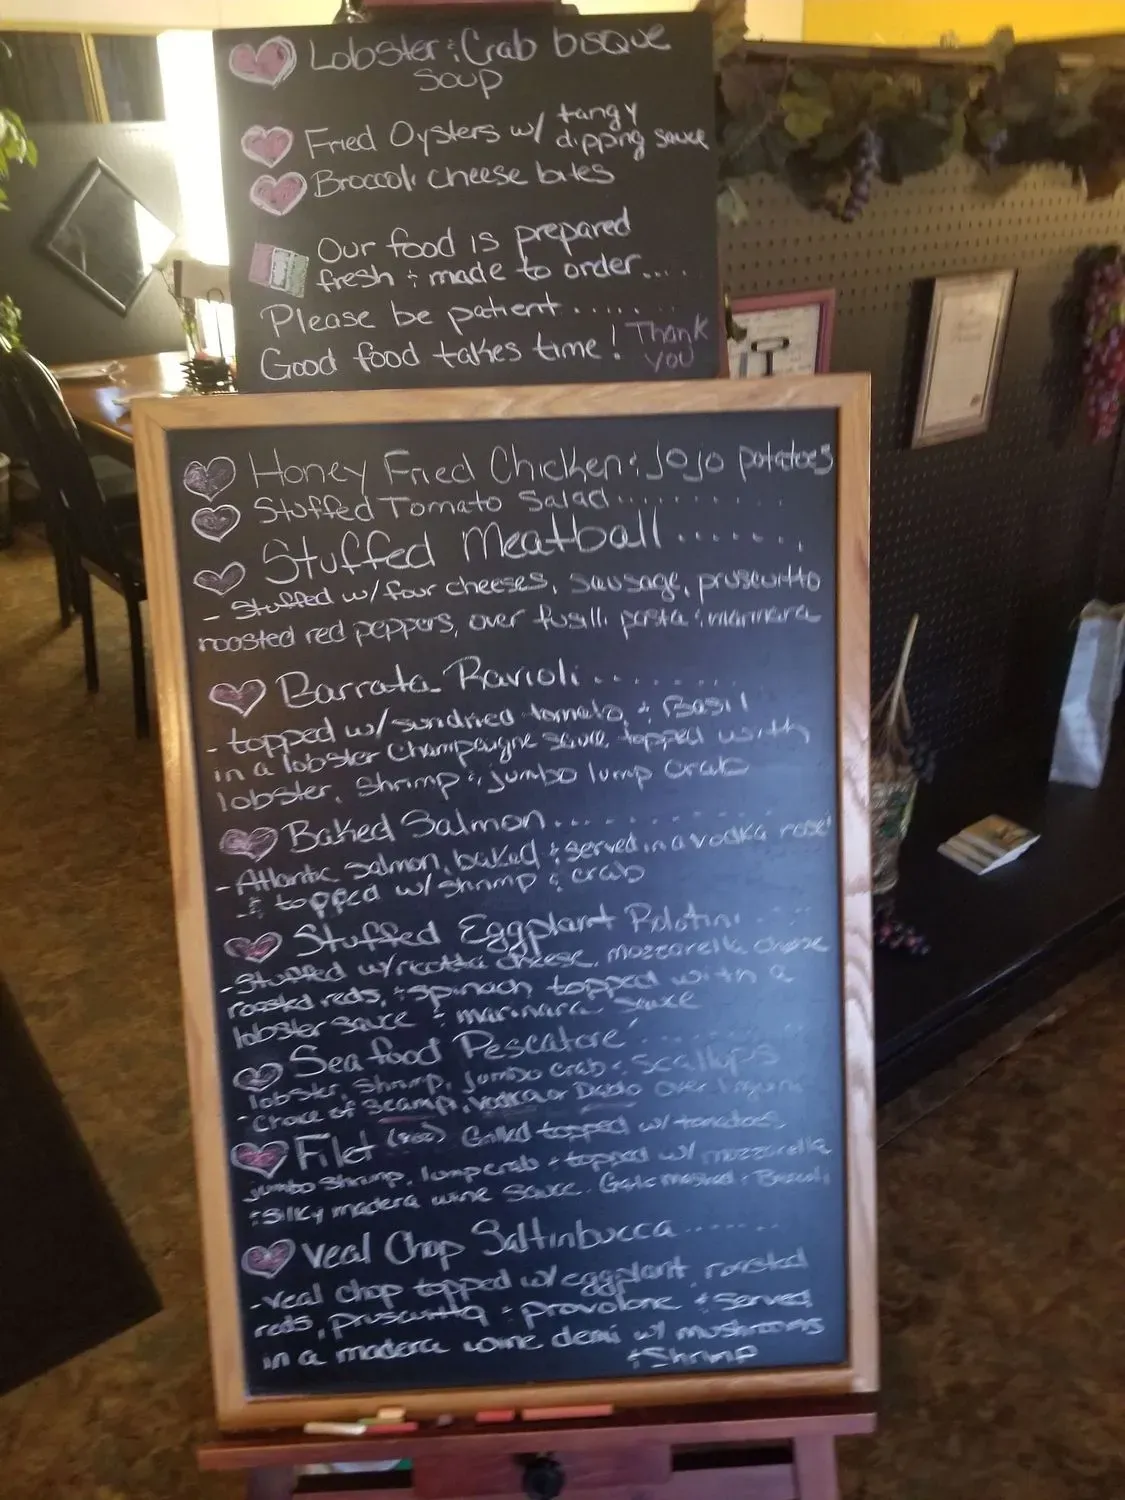 Lobster & Crab bisque
Soup
Fried Oysters w/ tangy
dipping sauce
Broccoli cheese bites
Our food is prepared
fresh & made to order....
Please be patient......
Good food takes time! Thank
you
Honey Fried Chicken & JoJo potatoes
Stuffed Tomato Salad..........
Stuffed Meatball.......
- Stuffed w/ four cheeses, sausage, pruscuitto
roasted red peppers, over fusilli pasta & marinara
Barrata Ravioli........
- topped w/ sundried tomato, & Basil
in a lobster Champaigne sauce topped with
lobster, Shrimp & jumbo lump Crab
Baked Salmon...........
- Atlantic salmon, baked & served in a vodka rose'
- & topped w/ shrimp & crab
Stuffed Eggplant Rolotini....
- Stuffed w/ ricotta cheese, mozzarella cheese
roasted reds, & spinach topped with a
lobster sauce & marinara sauce
Seafood Pescatore'........
lobster, Shrimp, Jumbo crab & Scallops
- Choice of Scampi, Vodka or Diablo over linguini
Filet (8oz) Grilled topped w/ tomatoes,
jumbo shrimp, lump crab & topped w/ mozzarella
& silky madera wine sauce. Garlic mashed & Broccoli
Veal Chop Saltinbucca.......
- Veal chop topped w/ eggplant, roasted
reds, pruscuitto & provolone & served
in a madera wine demi w/ mushrooms
& Shrimp